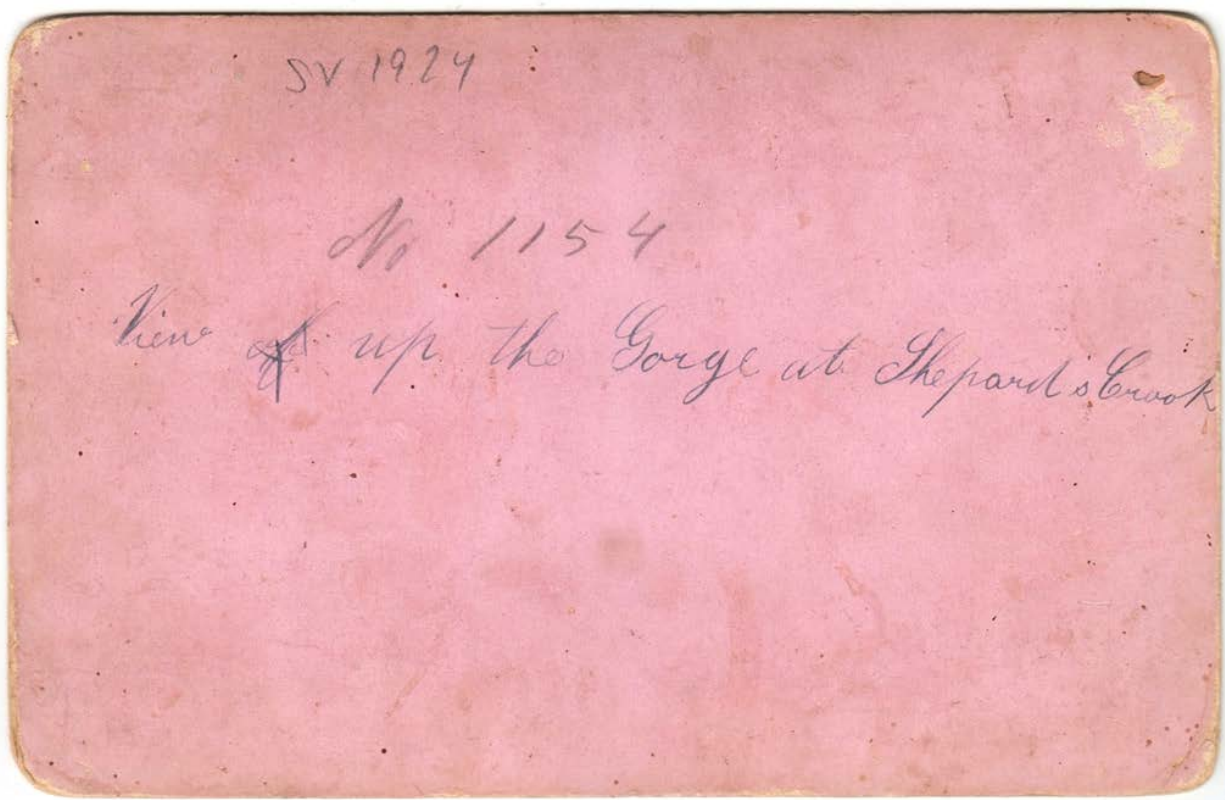 SV 1924
No 1154
View up the Gorge at Shepard s Crook